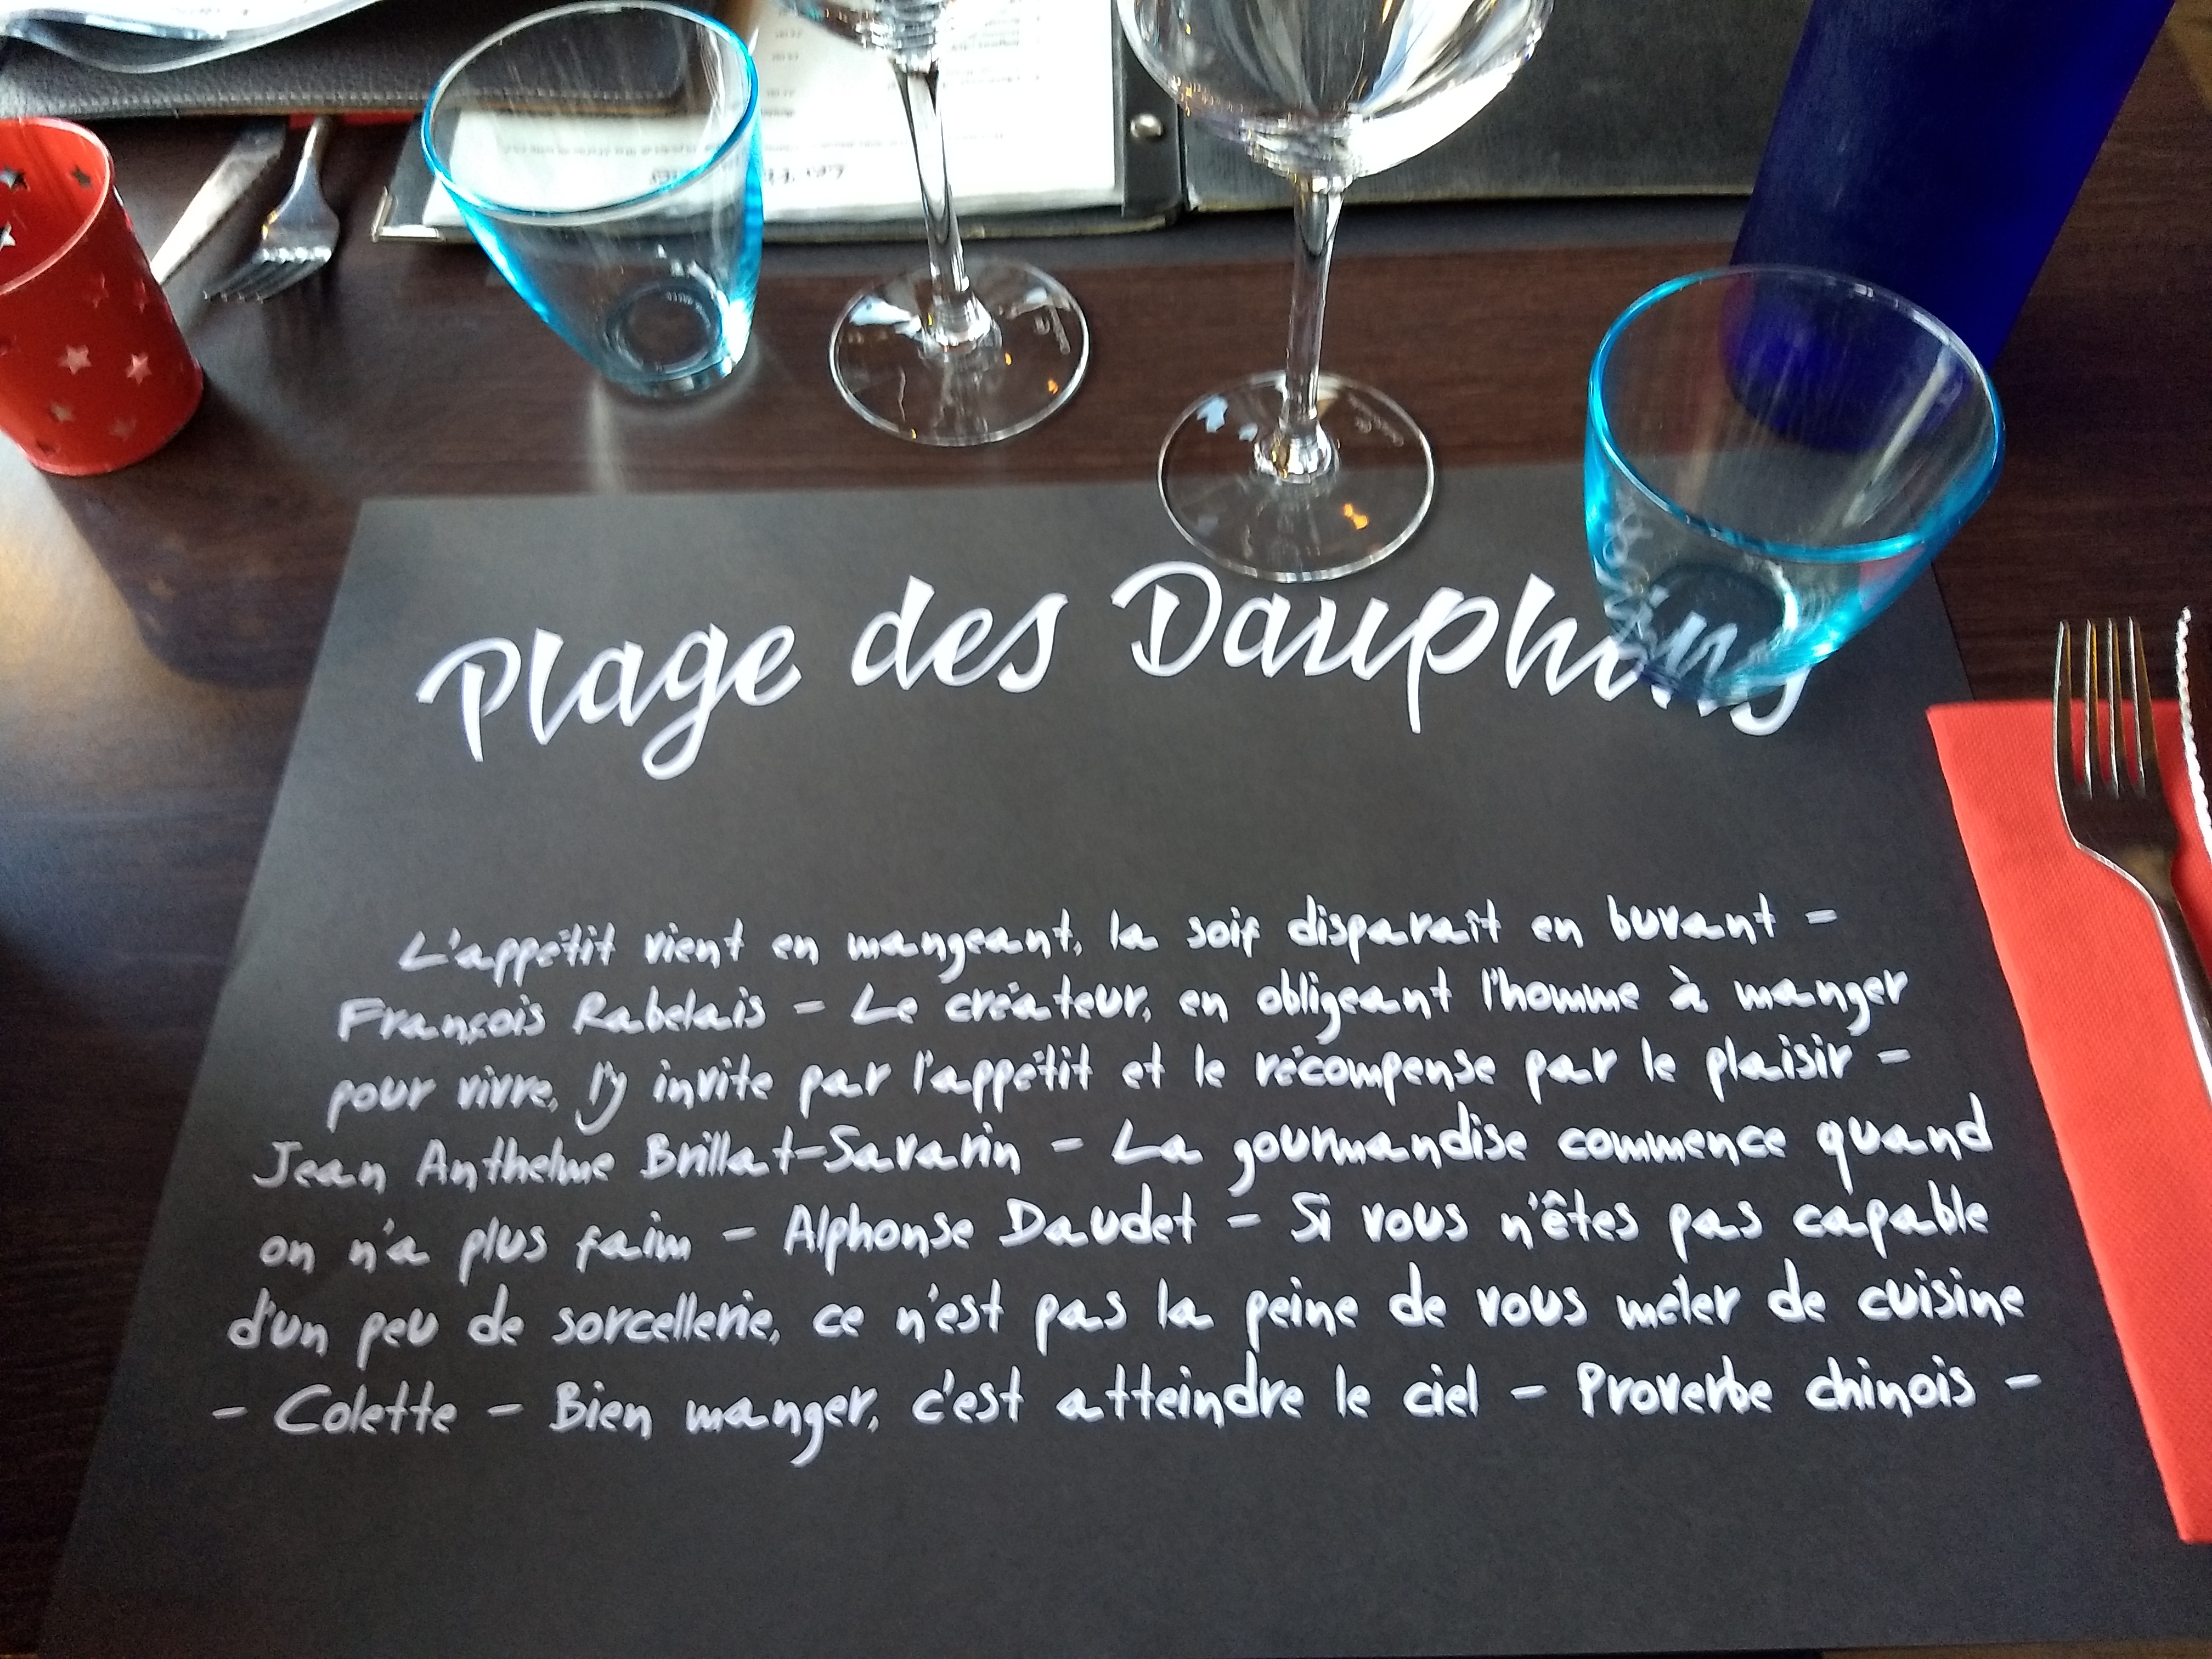 Plage des Dauphins
L'appétit vient en mangeant, la soif disparaît en buvant -
François Rabelais - Le créateur, en obligeant l'homme à manger
pour vivre, l'y invite par l'appétit et le récompense par le plaisir -
Jean Anthelme Brillat-Savarin - La gourmandise commence quand
on n'a plus faim - Alphonse Daudet - Si vous n'êtes pas capable
d'un peu de sorcellerie, ce n'est pas la peine de vous mêler de cuisine
- Colette - Bien manger, c'est atteindre le ciel - Proverbe chinois -